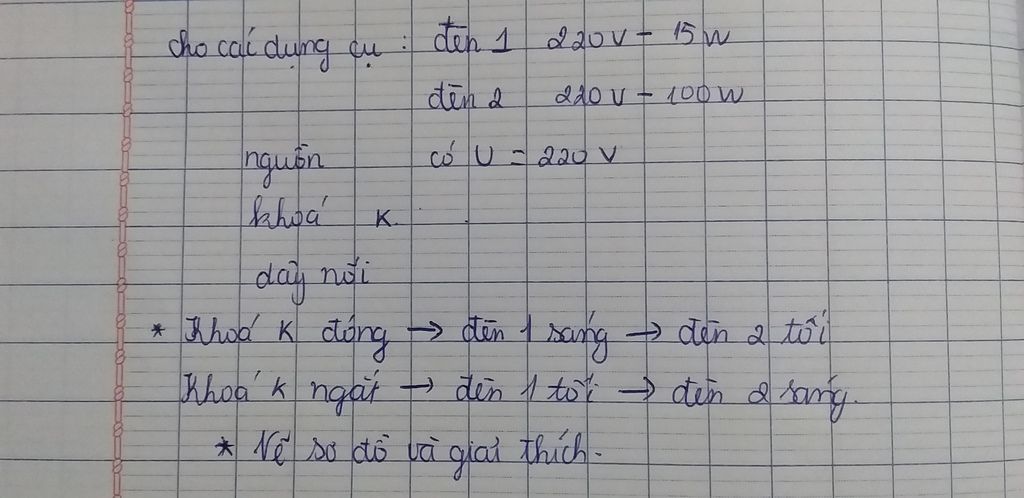 cho các dụng cụ : đèn 1 220V - 15W
đèn 2 220V - 100W
nguồn có U = 220V
khoá K.
dây nối
* Khoá K đóng → đèn 1 sáng → đèn 2 tối
Khoá K ngắt → đèn 1 tối → đèn 2 sáng.
* Vẽ sơ đồ và giải thích.